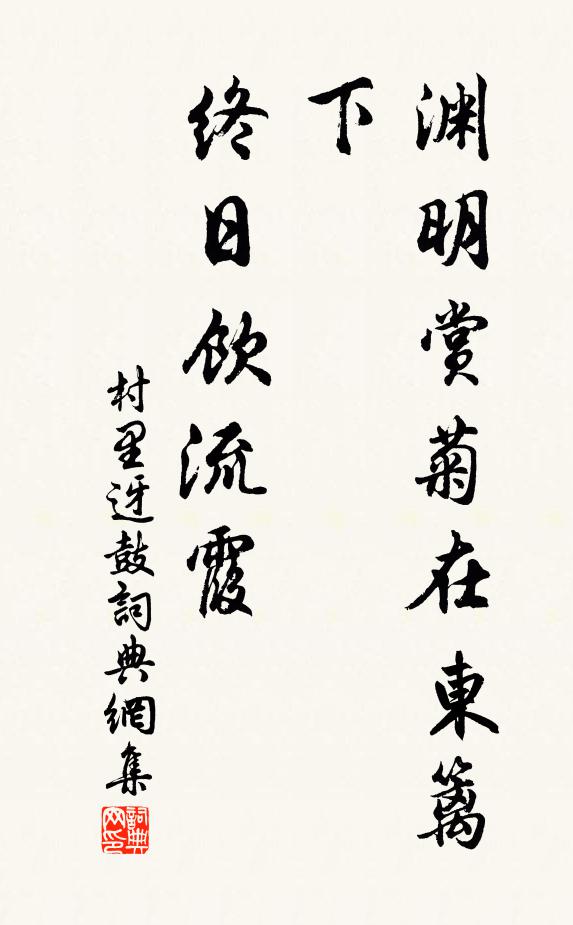 渊明赏菊在東篱
下
终日饮流霞
村里迓鼓詞典網集
詞典
网印